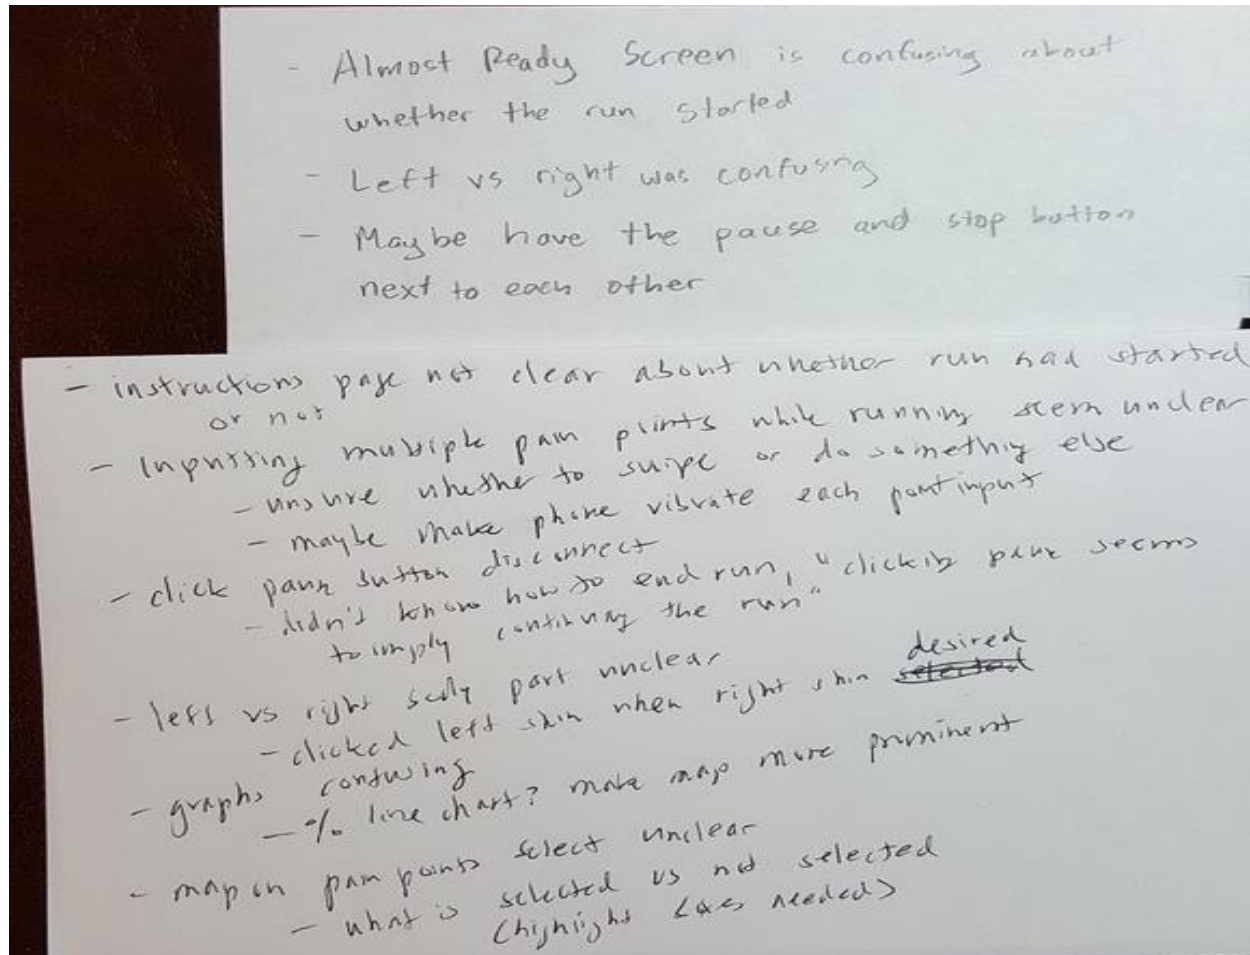 - Almost Ready Screen is confusing about
whether the run started
- Left vs right was confusing
- Maybe have the pause and stop button
next to each other
- instructions page not clear about whether run had started
or not
- Inputting multiple pain points while running seem unclear
- unsure whether to swipe or do something else
- maybe make phone vibrate each point input
- click pause button disconnect
- didn't know how to end run, "clicking pause seems
to imply continuing the run"
- left vs right body part unclear
- clicked left shin when right shin desired
- graphs confusing
- % line chart? make map more prominent
- map on pain points select unclear
- what is selected vs not selected
(highlight needed)